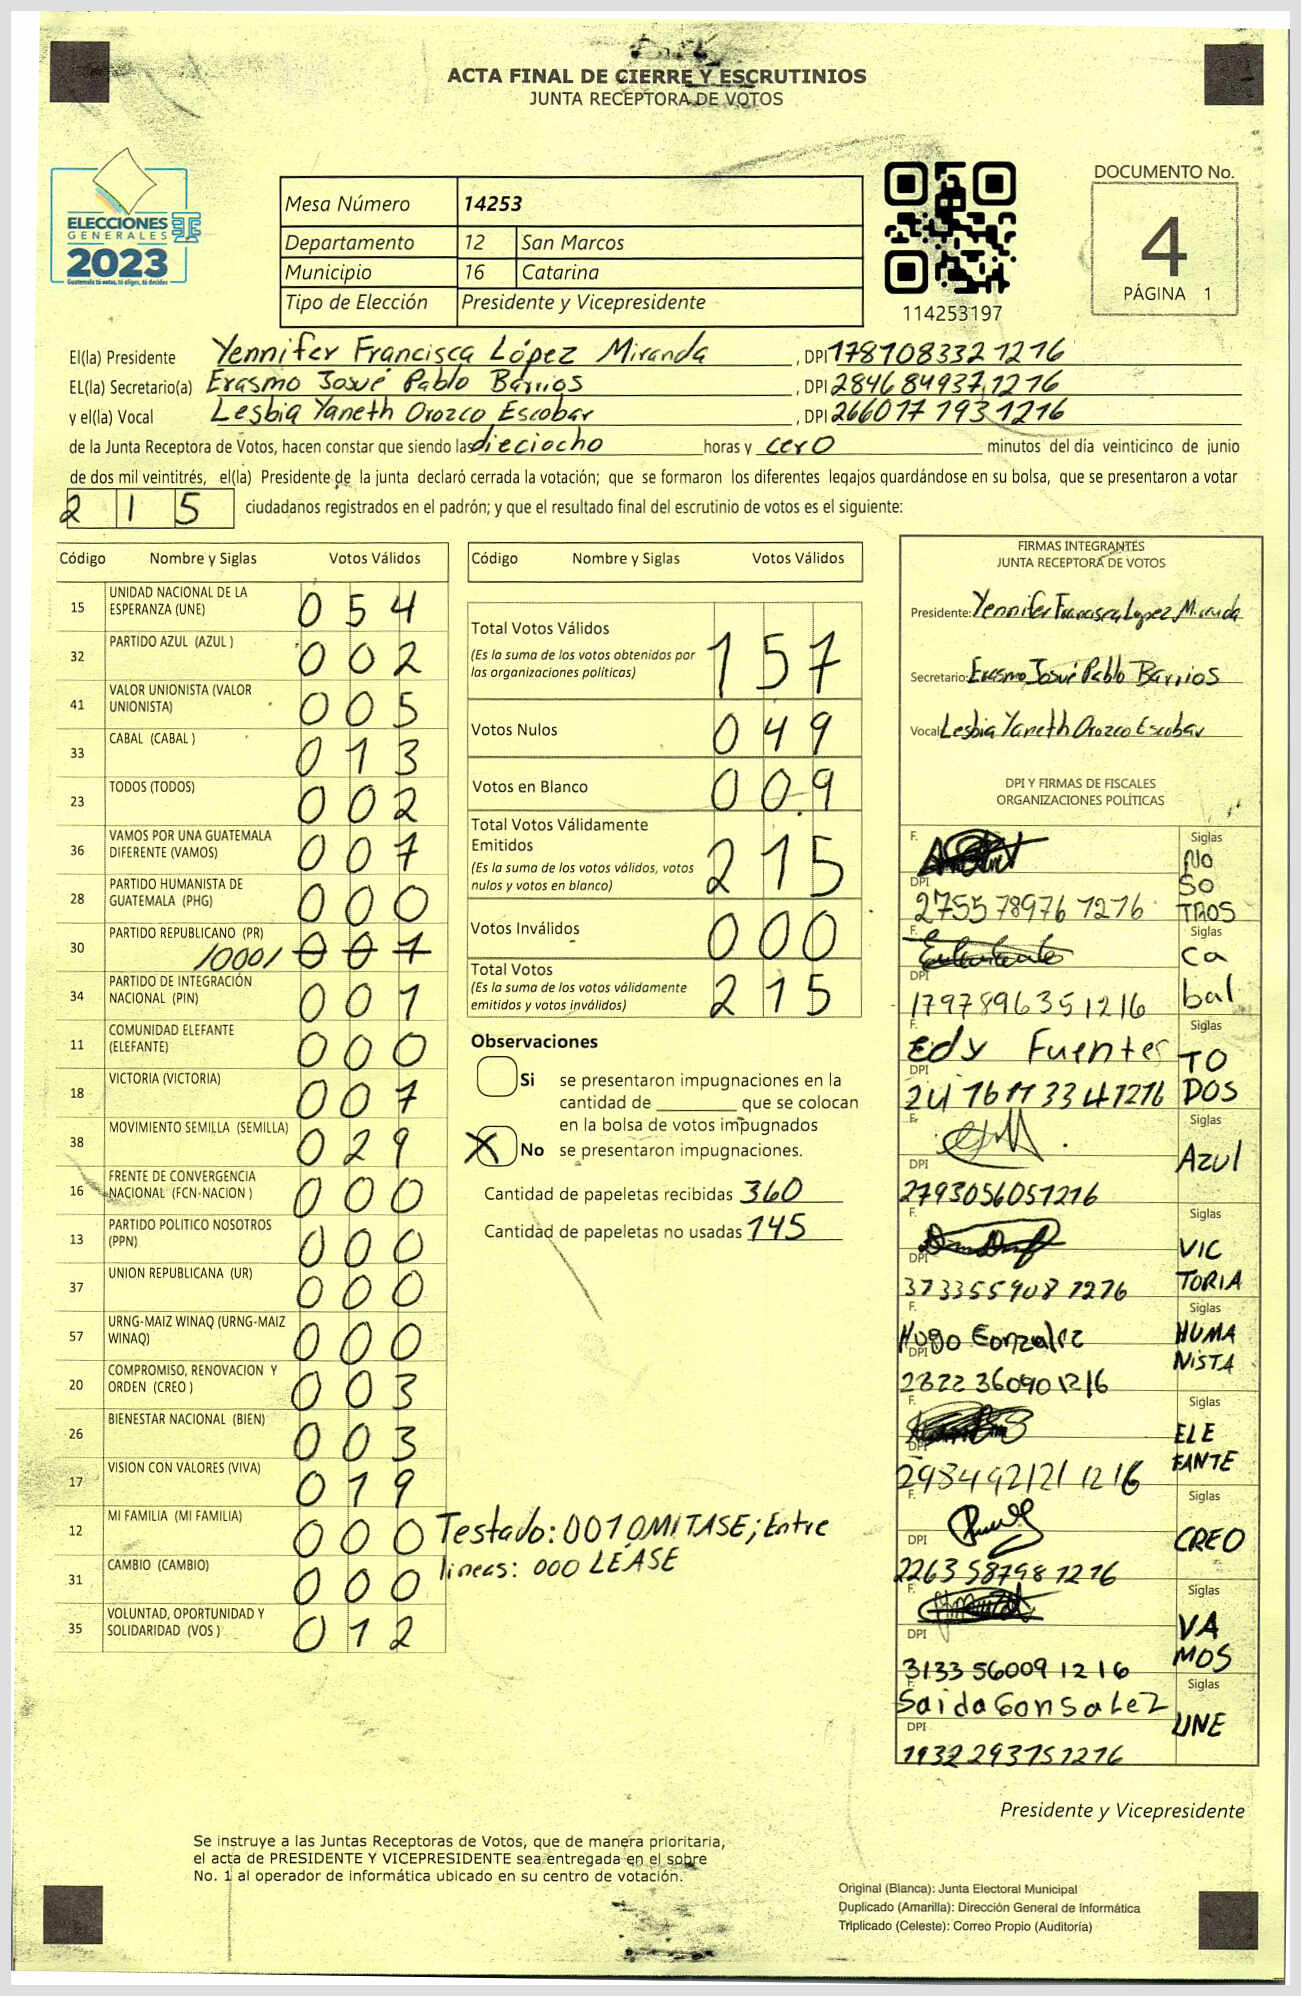 ACTA FINAL DE CIERRE Y ESCRUTINIOS
JUNTA RECEPTORA DE VOTOS
ELECCIONES
GENERALES
TSE
2023
Guatemala tú votas, tú eliges, tú decides
Mesa Número 14253
Departamento 12 San Marcos
Municipio 16 Catarina
Tipo de Elección Presidente y Vicepresidente
114253197
DOCUMENTO No.
4
PÁGINA 1
El(la) Presidente Yennifer Francisca López Miranda , DPI 178108332 1216
EL(la) Secretario(a) Erasmo Josué Pablo Barrios , DPI 284684937 1216
y el(la) Vocal Lesbia Yaneth Orozco Escobar , DPI 266017793 1216
de la Junta Receptora de Votos, hacen constar que siendo las dieciocho horas y cero minutos del día veinticinco de junio
de dos mil veintitrés, el(la) Presidente de la junta declaró cerrada la votación; que se formaron los diferentes legajos guardándose en su bolsa, que se presentaron a votar
2 1 5 ciudadanos registrados en el padrón; y que el resultado final del escrutinio de votos es el siguiente:
Código Nombre y Siglas Votos Válidos
15 UNIDAD NACIONAL DE LA
ESPERANZA (UNE) 0 5 4
32 PARTIDO AZUL (AZUL ) 0 0 2
41 VALOR UNIONISTA (VALOR
UNIONISTA) 0 0 5
33 CABAL (CABAL ) 0 1 3
23 TODOS (TODOS) 0 0 2
36 VAMOS POR UNA GUATEMALA
DIFERENTE (VAMOS) 0 0 7
28 PARTIDO HUMANISTA DE
GUATEMALA (PHG) 0 0 0
30 PARTIDO REPUBLICANO (PR)
/000/ 0 0 1
34 PARTIDO DE INTEGRACIÓN
NACIONAL (PIN) 0 0 1
11 COMUNIDAD ELEFANTE
(ELEFANTE) 0 0 0
18 VICTORIA (VICTORIA) 0 0 7
38 MOVIMIENTO SEMILLA (SEMILLA) 0 2 9
16 FRENTE DE CONVERGENCIA
NACIONAL (FCN-NACION ) 0 0 0
13 PARTIDO POLITICO NOSOTROS
(PPN) 0 0 0
37 UNION REPUBLICANA (UR) 0 0 0
57 URNG-MAIZ WINAQ (URNG-MAIZ
WINAQ) 0 0 0
20 COMPROMISO, RENOVACION Y
ORDEN (CREO ) 0 0 3
26 BIENESTAR NACIONAL (BIEN) 0 0 3
17 VISION CON VALORES (VIVA) 0 1 9
12 MI FAMILIA (MI FAMILIA) 0 0 0
31 CAMBIO (CAMBIO) 0 0 0
35 VOLUNTAD, OPORTUNIDAD Y
SOLIDARIDAD (VOS ) 0 1 2
Código Nombre y Siglas Votos Válidos
Total Votos Válidos
(Es la suma de los votos obtenidos por
las organizaciones politicas) 1 5 7
Votos Nulos 0 4 9
Votos en Blanco 0 0 9
Total Votos Válidamente
Emitidos
(Es la suma de los votos válidos, votos
nulos y votos en blanco) 2 1 5
Votos Inválidos 0 0 0
Total Votos
(Es la suma de los votos válidamente
emitidos y votos inválidos) 2 1 5
Observaciones
Si se presentaron impugnaciones en la
cantidad de ________ que se colocan
en la bolsa de votos impugnados
X No se presentaron impugnaciones.
Cantidad de papeletas recibidas 360
Cantidad de papeletas no usadas 145
Testado: 001 OMITASE; Entre
lineas: 000 LEASE
FIRMAS INTEGRANTES
JUNTA RECEPTORA DE VOTOS
Presidente: Yennifer Francisca Lopez Miranda
Secretario: Erasmo Josué Pablo Barrios
Vocal Lesbia Yaneth Orozco Escobar
DPI Y FIRMAS DE FISCALES
ORGANIZACIONES POLÍTICAS
F. Siglas
NO
SO
TROS
DPI
275578976 1216
F. Siglas
Ca
bal
DPI
179789635 1216
F. Siglas
Edy Fuentes
TO
DOS
DPI
F. Siglas
Azul
DPI
279305605 1216
F. Siglas
VIC
TORIA
DPI
373355908 1216
F. Siglas
Hugo Gonzalez
HUMA
NISTA
DPI
232236090 1216
F. Siglas
ELE
FANTE
DPI
298449212 1216
F. Siglas
CREO
DPI
226358798 1216
F. Siglas
VA
MOS
DPI
313356009 1216
F. Siglas
Saida Gonsalez
UNE
DPI
193229375 1216
Presidente y Vicepresidente
Se instruye a las Juntas Receptoras de Votos, que de manera prioritaria,
el acta de PRESIDENTE Y VICEPRESIDENTE sea entregada en el sobre
No. 1 al operador de informática ubicado en su centro de votación.
Original (Blanca): Junta Electoral Municipal
Duplicado (Amarilla): Dirección General de Informática
Triplicado (Celeste): Correo Propio (Auditoría)